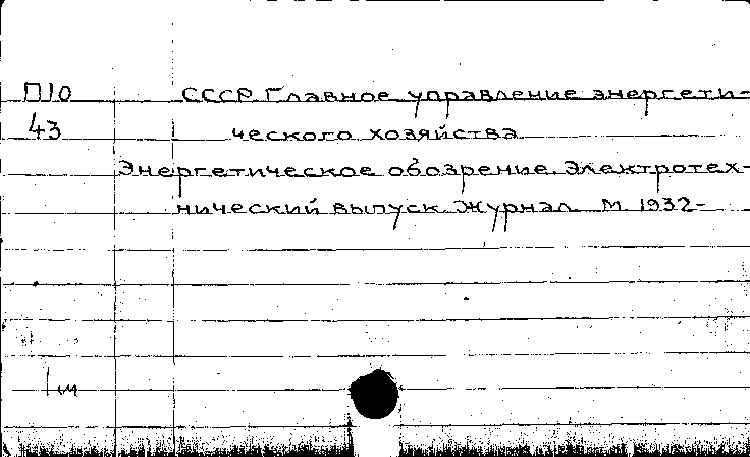 П10 СССР Главное управление энергети-
43 ческого хозяйства
Энергетическое обозрение. Электротех-
нический выпуск. Журнал. М. 1932-
1ш